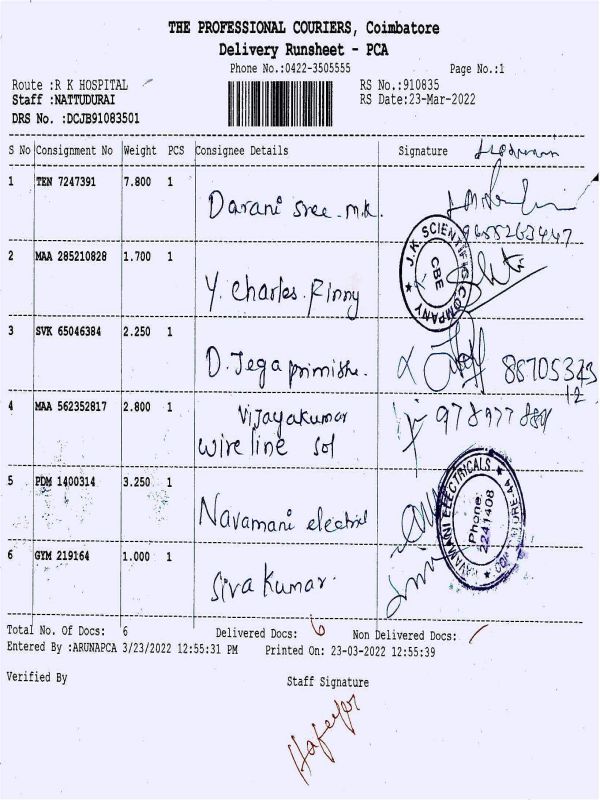 THE PROFESSIONAL COURIERS, Coimbatore
Delivery Runsheet - PCA
Phone No.:0422-3505555 Page No.:1
Route :R K HOSPITAL RS No.:910835
Staff :NATTUDURAI RS Date:23-Mar-2022
DRS No. :DCJB91083501
S No Consignment No Weight PCS Consignee Details Signature
1 TEN 7247391 7.800 1 Darani sree. m.k.
9655263447
2 MAA 285210828 1.700 1 Y. Charles. Finny
J.K SCIENTIFIC COMPANY
CBE
3 SVK 65046384 2.250 1 D. Jegaprimishe.
4 MAA 562352817 2.800 1 Vijayakumar
wire line sol
5 PDM 1400314 3.250 1 Navamani electrical
NAVAMANI ELECTRICALS
Phone:
2241408
6 GYM 219164 1.000 1 Siva Kumar.
Total No. Of Docs: 6 Delivered Docs: 6 Non Delivered Docs:
Entered By :ARUNAPCA 3/23/2022 12:55:31 PM Printed On: 23-03-2022 12:55:39
Verified By Staff Signature